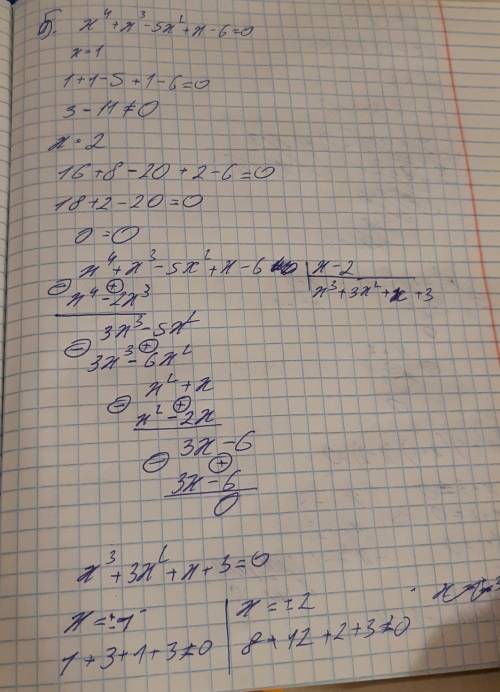 б). x⁴+x³-5x²+x-6=0
x=1
1+1-5+1-6=0
3-11≠0
x=2
16+8-20+2-6=0
18+2-20=0
0=0
x⁴+x³-5x²+x-6 | x-2
x⁴-2x³ | x³+3x²+x+3
3x³-5x²
3x³-6x²
x²+x
x²-2x
3x-6
3x-6
0
x³+3x²+x+3=0
x=±1 | x=±2
1+3+1+3≠0 | 8+12+2+3≠0